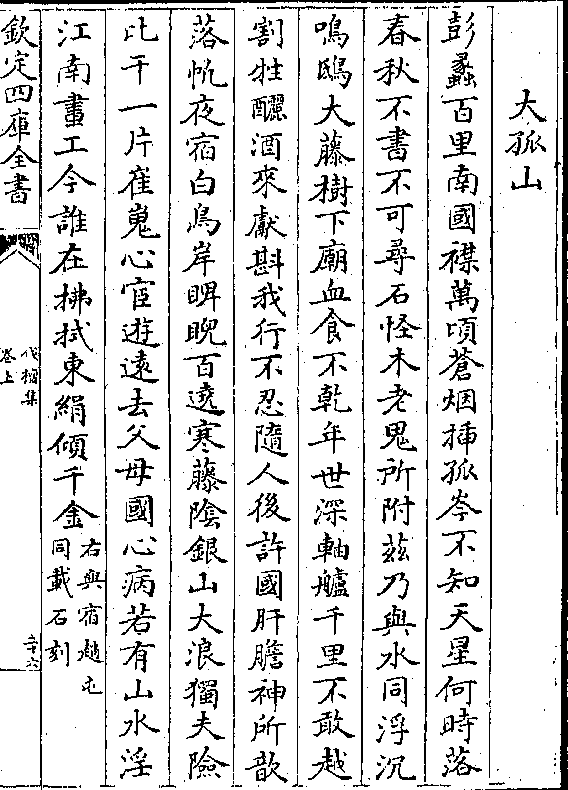 大孤山
彭蠡百里南國襟萬頃蒼烟揷孤岑不知天星何時落
春秋不書不可尋石怪木老鬼所附茲乃與水同浮沉
鳴鴟大藤樹下廟血食不乾年世深軸艫千里不敢越
割牲釃酒來獻斟我行不忍隨人後許國肝膽神所歆
落帆夜宿白鳥岸睥睨百遶寒藤陰銀山大浪獨夫險
比干一片崔嵬心宦遊遠去父母國心病若有山水淫
江南畫工今誰在拂拭東絹傾千金右與宿趙屯
同載石刻
欽定四庫全書
伐檀集
卷上
二十六